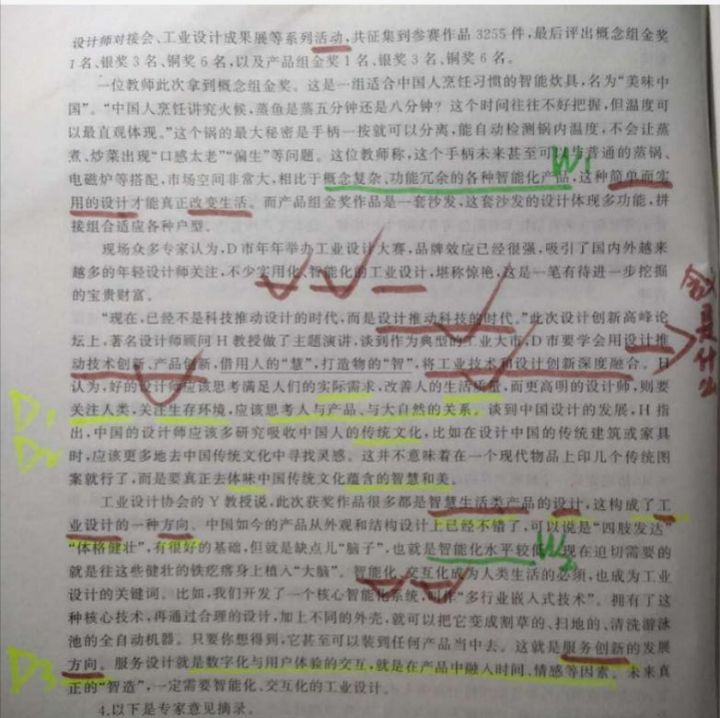 设计师对接会、工业设计成果展等系列活动,共征集到参赛作品 3255 件,最后评出概念组金奖
1 名、银奖 3 名、铜奖 6 名,以及产品组金奖 1 名、银奖 3 名、铜奖 6 名。
一位教师此次拿到概念组金奖。这是一组适合中国人烹饪习惯的智能炊具,名为“美味中
国”。“中国人烹饪讲究火候,蒸鱼是蒸五分钟还是八分钟?这个时间往往不好把握,但温度可
以最直观体现。”这个锅的最大秘密是手柄一按就可以分离,能自动检测锅内温度,不会让蒸
煮、炒菜出现“口感太老”“偏生”等问题。这位教师称,这个手柄未来甚至可以与普通的蒸锅、
电磁炉等搭配,市场空间非常大,相比于概念复杂、功能冗余的各种智能化产品,这种简单而实
用的设计才能真正改变生活。而产品组金奖作品是一套沙发,这套沙发的设计体现多功能,拼
接组合适应各种户型。
现场众多专家认为,D 市年年举办工业设计大赛,品牌效应已经很强,吸引了国内外越来
越多的年轻设计师关注,不少实用化、智能化的工业设计,堪称惊艳,这是一笔有待进一步挖掘
的宝贵财富。
“现在,已经不是科技推动设计的时代,而是设计推动科技的时代。”此次设计创新高峰论
坛上,著名设计师顾问 H 教授做了主题演讲,谈到作为典型的工业大市,D 市要学会用设计推
动技术创新、产品创新,借用人的“慧”,打造物的“智”,将工业技术和设计创新深度融合。H
认为,好的设计师应该思考满足人们的实际需求,改善人的生活质量,而更高明的设计师,则要
关注人类,关注生存环境,应该思考人与产品、与大自然的关系。谈到中国设计的发展,H 指
出,中国的设计师应该多研究吸收中国人的传统文化,比如在设计中国的传统建筑或家具
时,应该更多地去中国传统文化中寻找灵感。这并不意味着在一个现代物品上印几个传统图
案就行了,而是要真正去体味中国传统文化蕴含的智慧和美。
工业设计协会的 Y 教授说,此次获奖作品很多都是智慧生活类产品的设计,这构成了工
业设计的一种方向。中国如今的产品从外观和结构设计上已经不错了,可以说是“四肢发达”
“体格健壮”,有很好的基础,但就是缺点儿“脑子”,也就是智能化水平较低。现在迫切需要的
就是往这些健壮的铁疙瘩身上植入“大脑”。智能化、交互化成为人类生活的必须,也成为工业
设计的关键词。比如,我们开发了一个核心智能化系统,叫作“多行业嵌入式技术”。拥有了这
种核心技术,再通过合理的设计,加上不同的外壳,就可以把它变成割草的、扫地的、清洗游泳
池的全自动机器。只要你想得到,它甚至可以装到任何产品当中去。这就是服务创新的发展
方向。服务设计就是数字化与用户体验的交互,就是在产品中融入时间、情感等因素。未来真
正的“智造”,一定需要智能化、交互化的工业设计。
4.以下是专家意见摘录。
W1
W2
D1
D2
D3
是什么